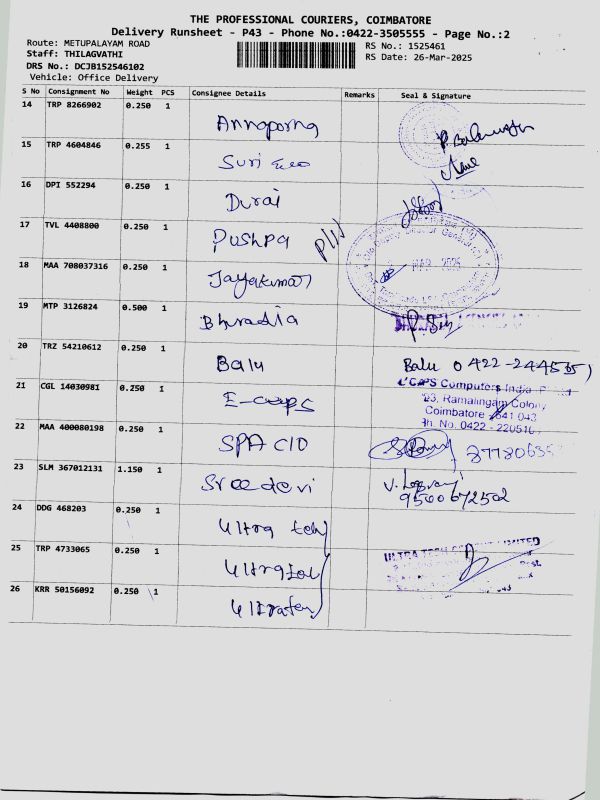 THE PROFESSIONAL COURIERS, COIMBATORE
Delivery Runsheet - P43 - Phone No.:0422-3505555 - Page No.:2
Route: METUPALAYAM ROAD RS No.: 1525461
Staff: THILAGVATHI RS Date: 26-Mar-2025
DRS No.: DCJB152546102
Vehicle: Office Delivery
S No Consignment No Weight PCS Consignee Details Remarks Seal & Signature
14 TRP 8266902 0.250 1 Annaporna
15 TRP 4604846 0.255 1 Suri
16 DPI 552294 0.250 1 Durai
17 TVL 4408800 0.250 1 Pushpa
18 MAA 708037316 0.250 1 Jayakumar
MAR 2025
19 MTP 3126824 0.500 1 Bhradia
20 TRZ 54210612 0.250 1 Balu Balu
21 CGL 14030981 0.250 1 E-caps
CAPS Computers India
23, Ramalingam Colony
Coimbatore 641 043
Ph. No. 0422 -
22 MAA 400080198 0.250 1 SPA CIO
23 SLM 367012131 1.150 1 Sreedevi
9500672502
24 DDG 468203 0.250 1 Ultra tech
25 TRP 4733065 0.250 1 Ultratech
ULTRA TECH LIMITED
26 KRR 50156092 0.250 1 Ultratech